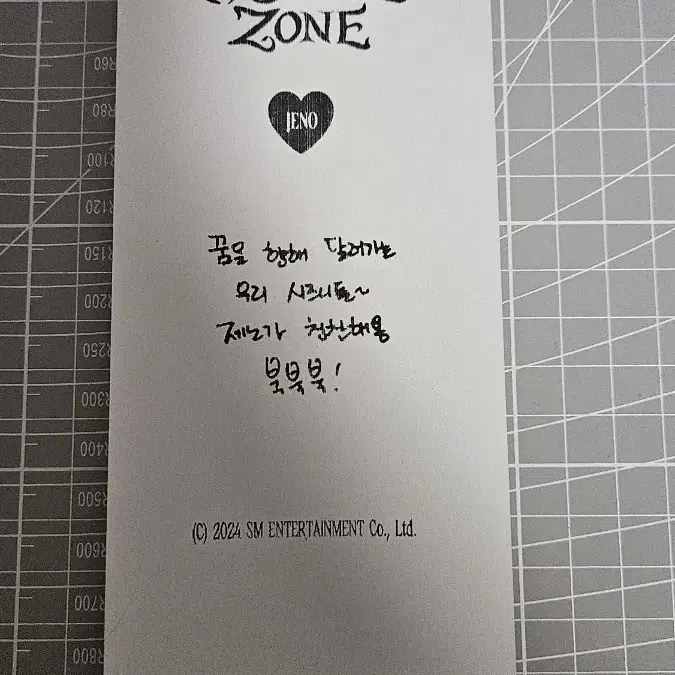 ZONE
JENO
꿈을 향해 달려가는
우리 시즈니들~
제노가 칭찬해용
북북북!
(C) 2024 SM ENTERTAINMENT Co., Ltd.
R60
R80
R100
R120
R150
R200
R250
R300
R400
R500
R600
R700
R800